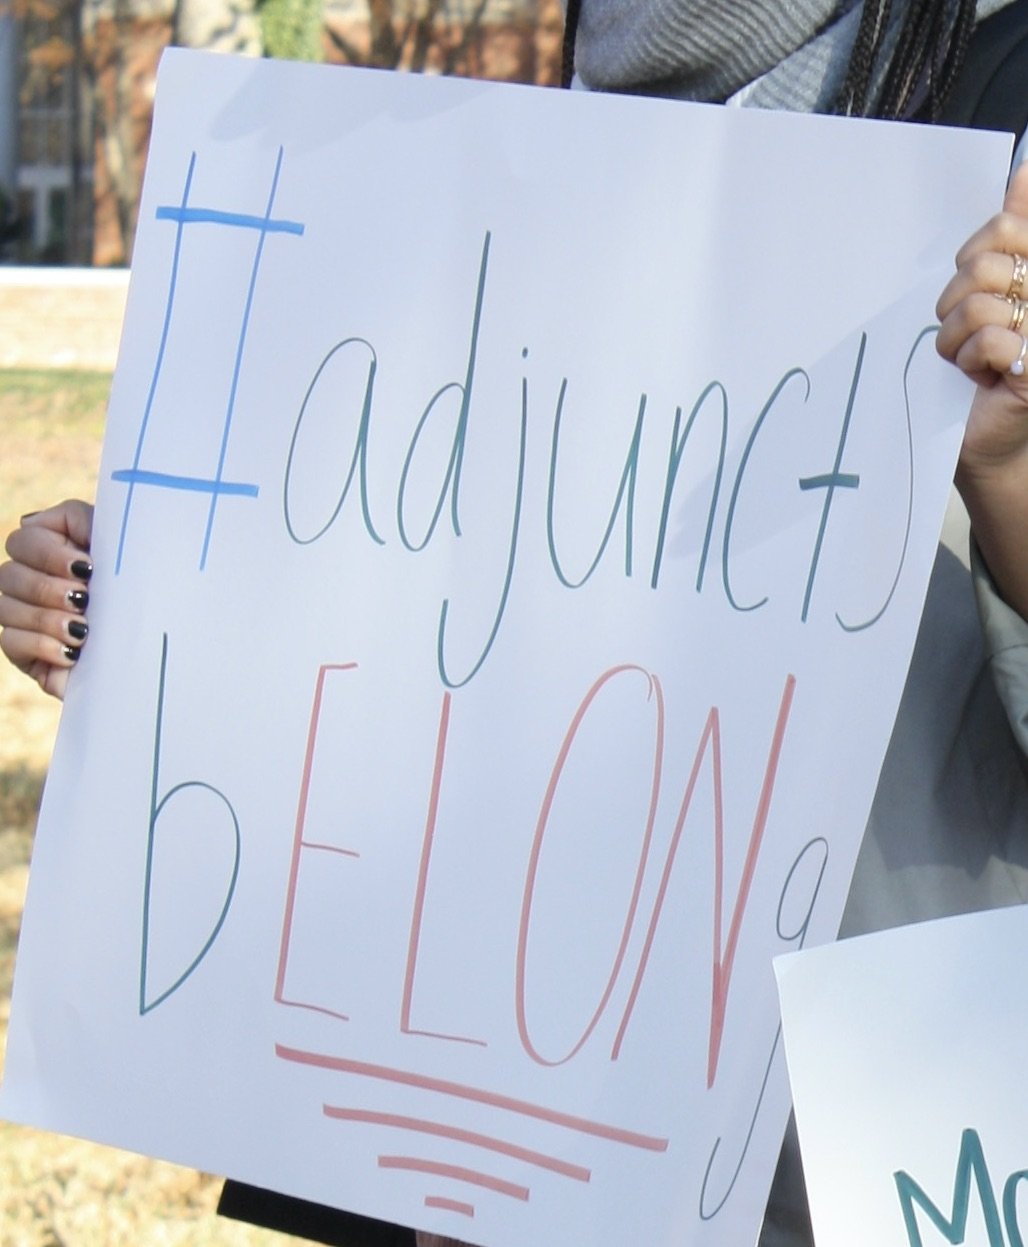 #adjuncts
bELONg